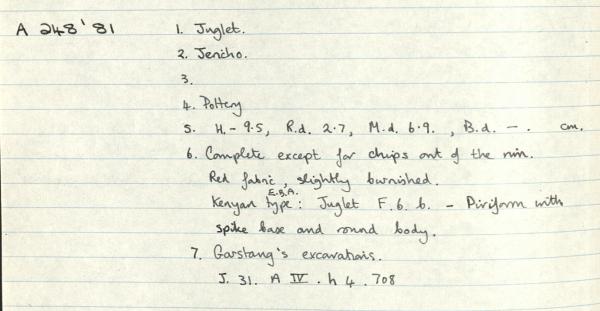 A 248'81
1. Juglet.
2. Jericho.
3.
4. Pottery
5. H. - 9.5, R.d. 2.7, M.d. 6.9. , B.d. - . cm.
6. Complete except for chips out of the rim.
Red fabric, slightly burnished.
E.B.A.
Kenyan type: Juglet F.6.b. - Piriform with
spike base and round body.
7. Garstang's excavations.
J. 31. A IV. h 4. 708